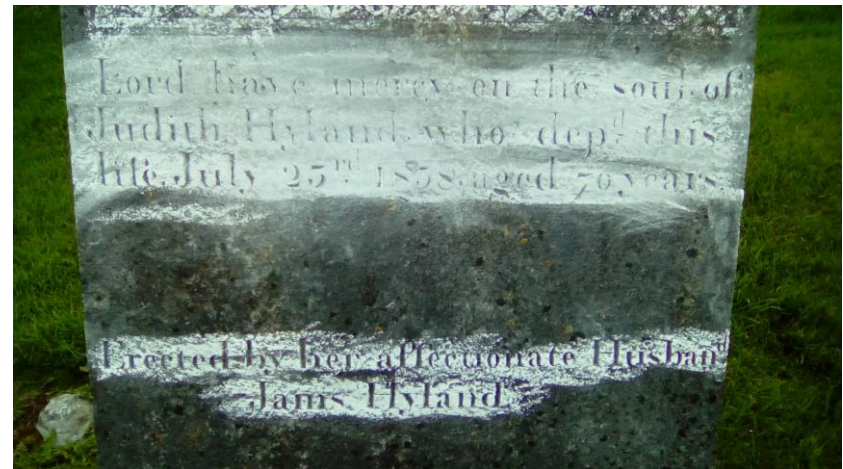 Lord have mercy on the soul of
Judith Hyland who dep.d this
life July 23rd 1838 aged 70 years
Erected by her affectionate Husband
Jams Hyland